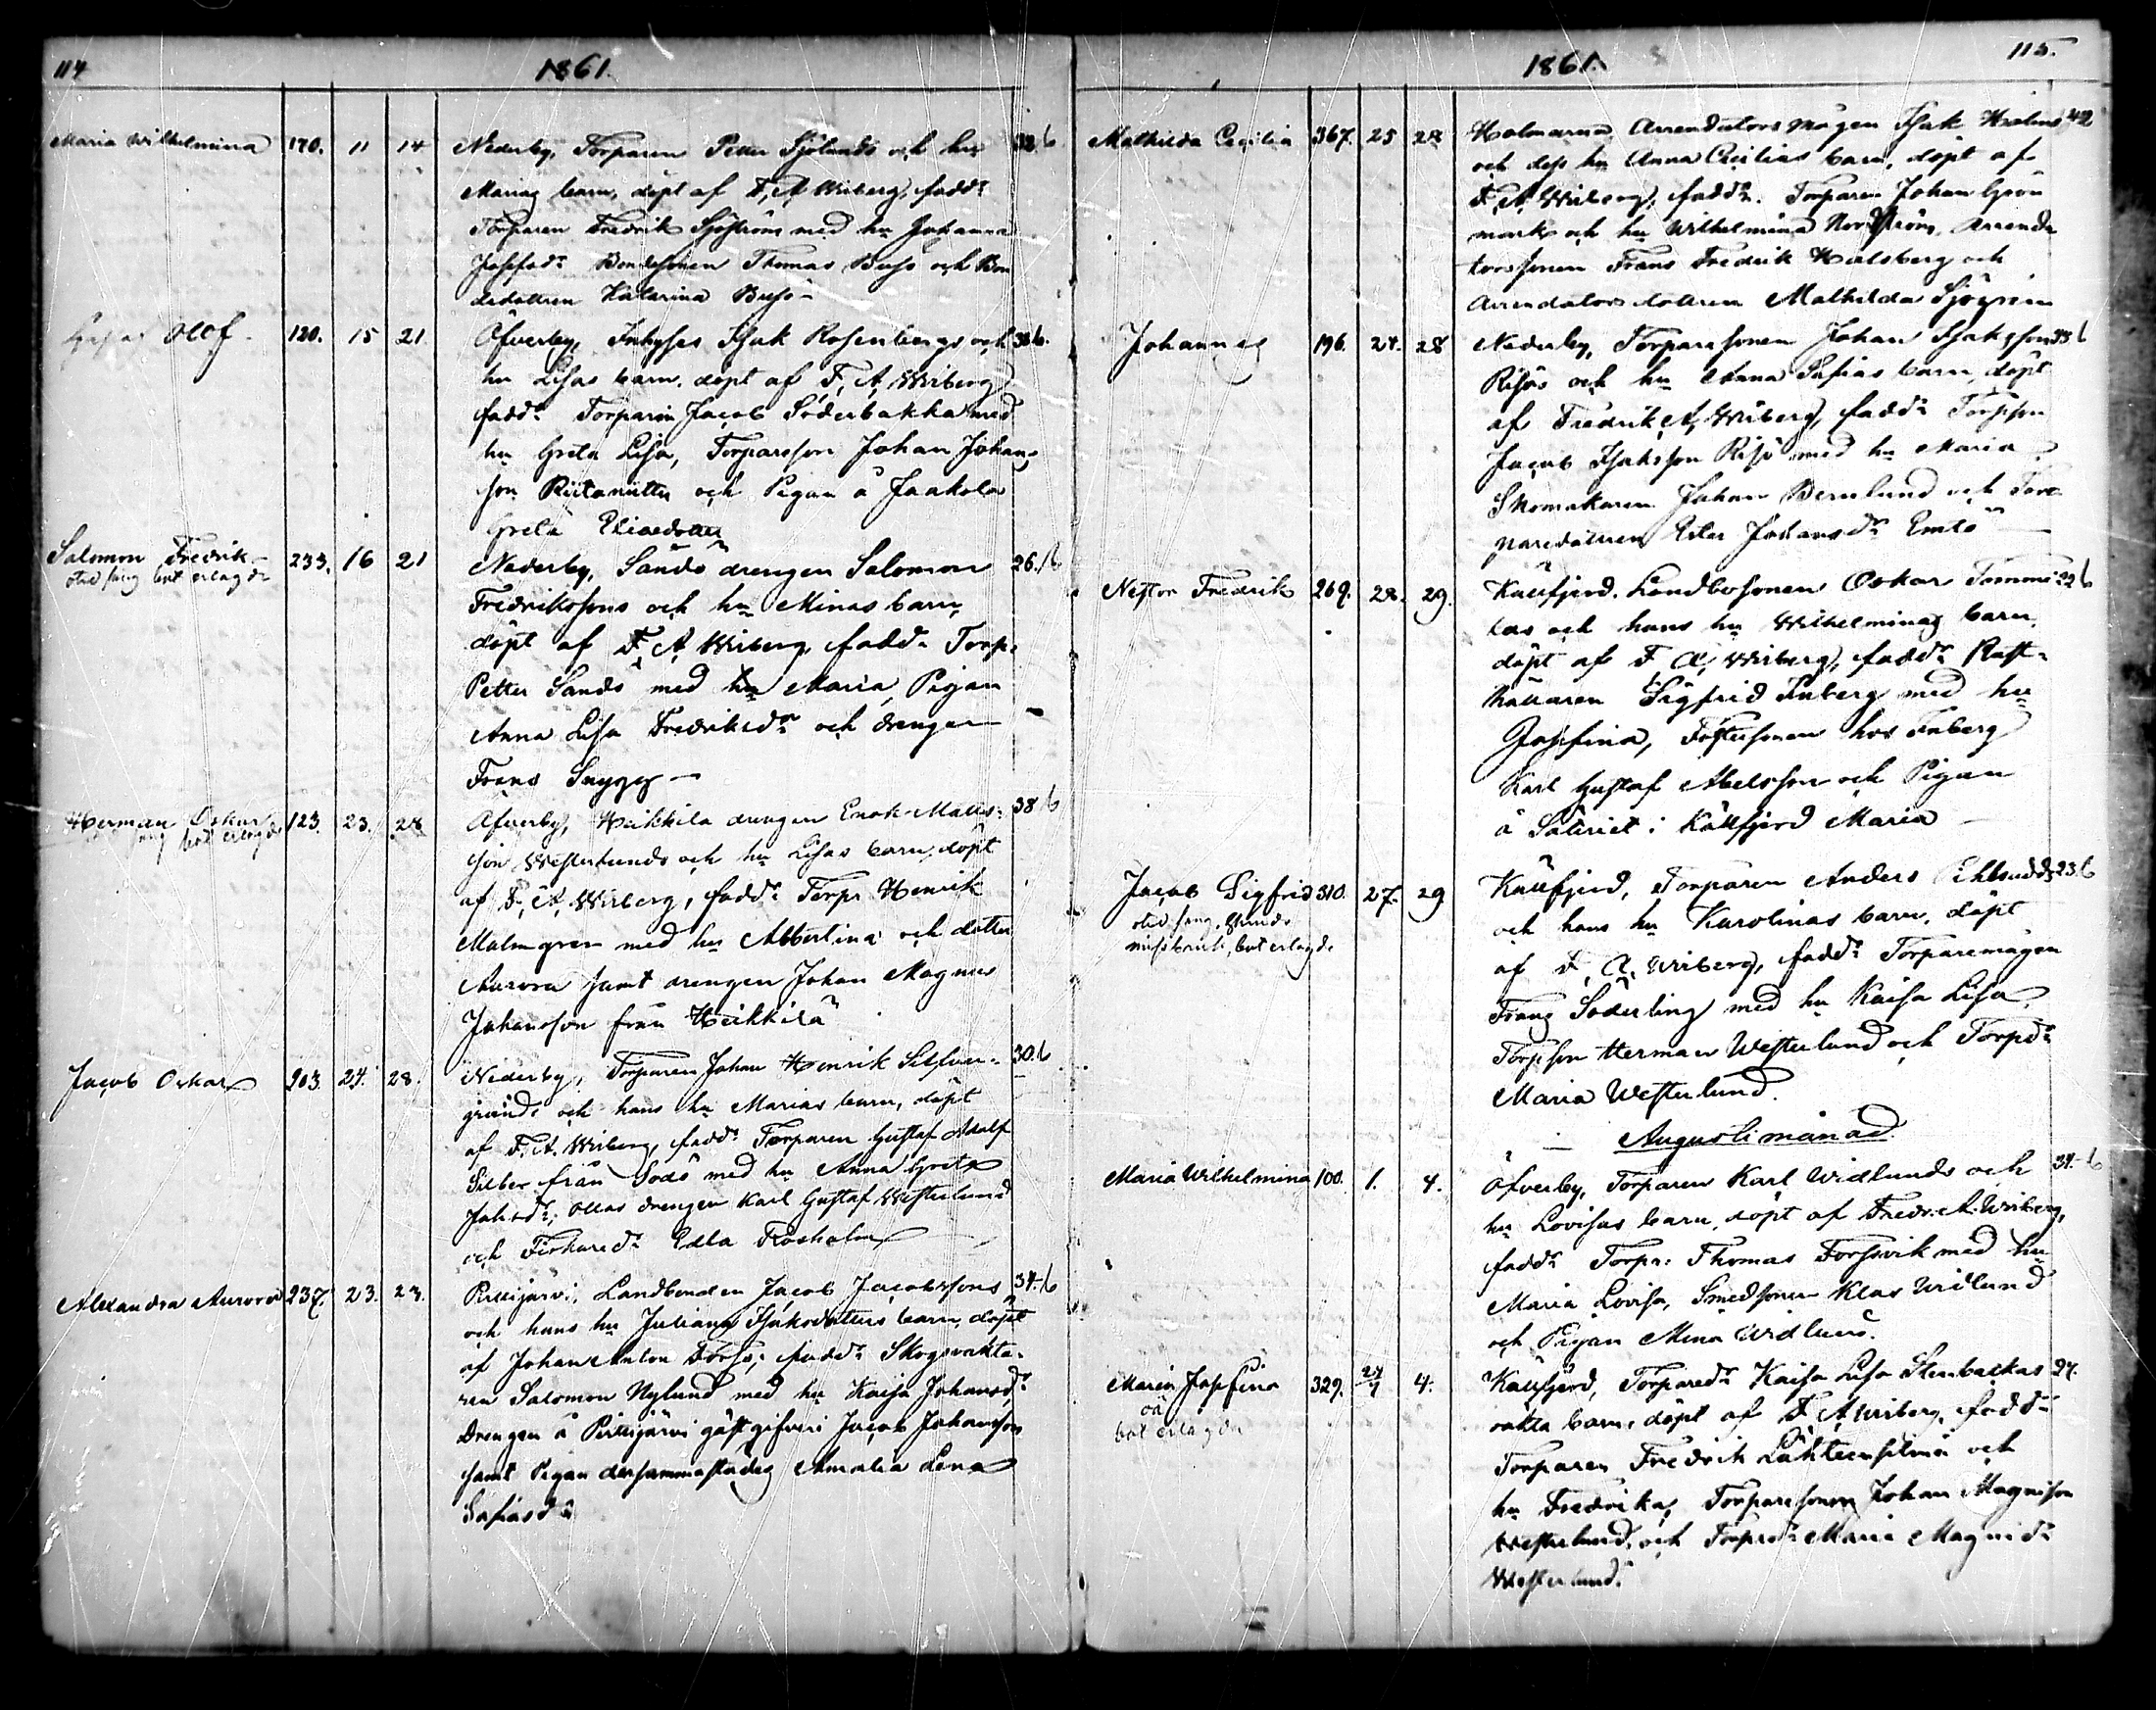 114
1861.
Maria Wilhelmina 170. 11 14 Nederby, Torparen Petter Sjölunds och hu 32.6
Marias barn, döpt af F. A. Wiberg, fadd:
Torparen Fredrik Sjöström med hu Johanna
Josefsd: Bondesonen Thomas Buss och Bon
dedottren Katarina Buss –
Olof. 120. 15 21 Öfverby, Inhyses Isak Rosenbergs och 36.6.
hu Lisas barn, döpt af F. A. Wiberg
fadd: Torparen Jacob Söderbakka med
hu Greta Lisa, Torparsson Johan Johans
son Riitaniittu och Pigan å Jaakola
Greta Eliaedotter
Salomon Fredrik 233. 16 21 Nederby, Sandö drengen Salomon 26.6
bot erlagde
Fredrikssons och hu Minas barn,
döpt af F. A. Wiberg, fadd: Torp:
Petter Sandö med hu Maria, Pigan
Anna Lisa Fredriksd: och drengen
Frans Snygg –
Herman Oskar 123. 23. 28 Öfverby, Heikkilä drengen Enok Matts= 38.6
bot erlagde
son Westerlunds och hu Lisas barn, döpt
af F. A. Wiberg, fadd: Torpr Henrik
Malmgren med hu Albertina och dotter
Aurora samt drengen Johan Magnus
Johansson från Heikkilä
Jacob Oskar 903. 24. 28. Nederby, Torparen Johan Henrik Silfver= 30.6
grunds och hans hu Marias barn, döpt
af F. A. Wiberg, fadd: Torparen Gustaf Adolf
Silber från Sodö med hu Anna Greta
Jakobsd:, Ollas drengen Karl Gustaf Westerlund
och Fiskared: Edla Rosholm
Alexandra Aurora 237. 23. 23. Pettijärvi, Landbonden Jacob Jacobssons 34.6
och hans hu Juliana Isaksdotters barn, döpt
af Johan Anton Forss, fadd: Skogsvakta=
ren Salomon Nylund med hu Kaisa Johansd:
Drengen å Pettijärvi gästgifveri Jacob Johansson
samt Pigan dersammastädes Amalia Lena
Safiasd:
115.
1861.
Mathilda Cecilia 367. 25 28 Holmarna Arrendators mågen Isak Holms 42
och dess hu Anna Cecilias barn, döpt af
F. A. Wiberg, fadd: Torparen Johan Grön
mark och hu Wilhelmina Nordström, Arrenda
torssonen Frans Fredrik Holsberg och
Arrendators dottren Mathilda Sjögren
Johannes 196. 24. 28 Nederby, Torparesonen Johan Isaksson 33.6
Risös och hu Anna Safias barn, döpt
af Fredrik A. Wiberg, fadd: Torpson
Jacob Isaksson Risö med hu Maria
Skomakaren Johan Bernlund och Tor
paredottren Ester Johansd: Emlö
Nestor Fredrik 269. 28. 29. Kallfjerd, Landbosonen Oskar Tommi 22.6
las och hans hu Wilhelminas barn,
döpt af F. A. Wiberg, fadd: Rust=
hållaren Sigfrid Inberg med hu
Josefina, Fostersonen hos Inberg
Karl Gustaf Abelsson och Pigan
å Säteriet i Kallfjerd Maria
Jacob Sigfrid 310. 27. 29 Kallfjerd, Torparen Anders Ekhudds 23.6
bot erlagde
och hans hu Karolinas barn, döpt
af F. A. Wiberg, fadd: Torparemågen
Frans Söderling med hu Kaisa Lisa,
Torpson Herman Westerlund och Torpd:
Maria Westerlund.
Augusti månad.
Maria Wilhelmina 100. 1. 4. Öfverby, Torparen Karl Widlunds och 34.6
hu Lovisas barn, döpt af Fredr. A. Wiberg,
fadd: Torpr: Thomas Forssvik med hu
Maria Lovisa, Smedsonen Klas Widlund
och Pigan Mina Widlund.
Maria Josefina 329. 24/7 4. Kallfjerd, Torpared: Kaisa Lisa Stenbackas 24.
oä
bot erlagde
oäkta barn, döpt af F. A. Wiberg, fadd:
Torparen Fredrik Lähteensilmä och
hu Fredrika, Torparesonen Johan Magnisson
Westerlund, och Torpd: Maria Magnid:
Westerlund.